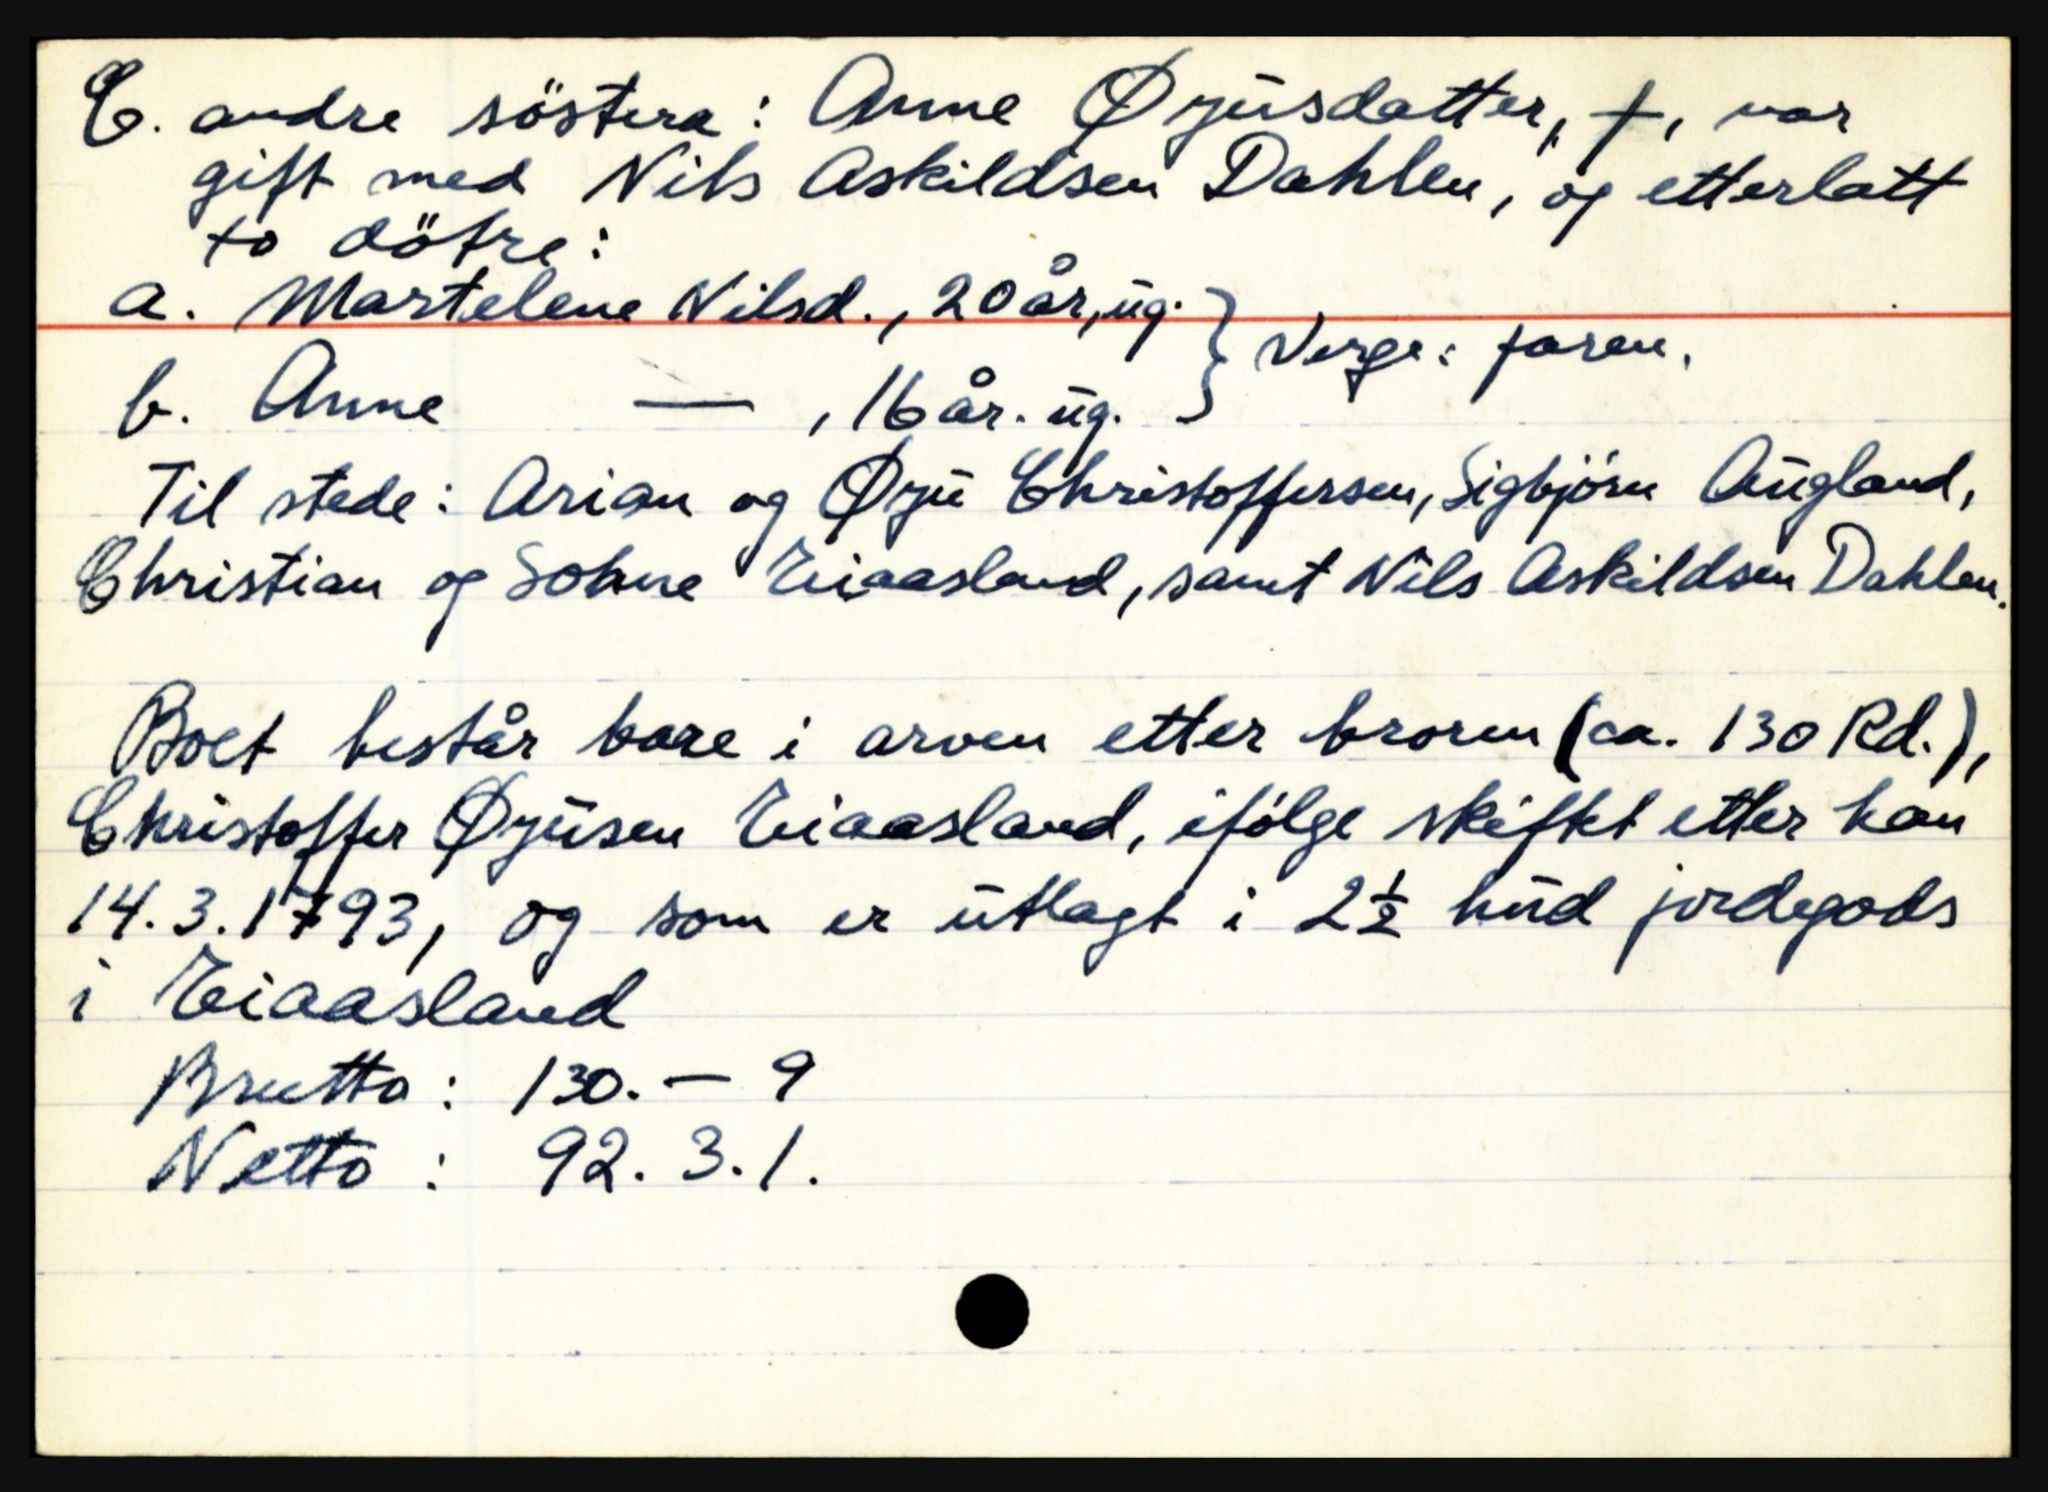 C. andre söstera: Anne Øyusdatter, †, var
gift med Nils Askildsen Dahlen, og etterlatt
to dötre:
a. Martelene Nilsd., 20 år, ug. } Verge: faren.
b. Anne — , 16 år. ug. }
Til stede: Arian og Øyu Christoffersen, Sigbjörn Augland,
Christian og Eiaasland, samt Nils Askildsen Dahlen.
Boet består bare i arven etter broren (ca. 130 Rd.),
Christoffer Øyusen Eiaasland, ifölge skiftet etter han
14.3.1793, og som er utlagt i 2½ hud jordegods
i Eiaasland
Brutto: 130. — 9
Netto: 92. 3. 1.